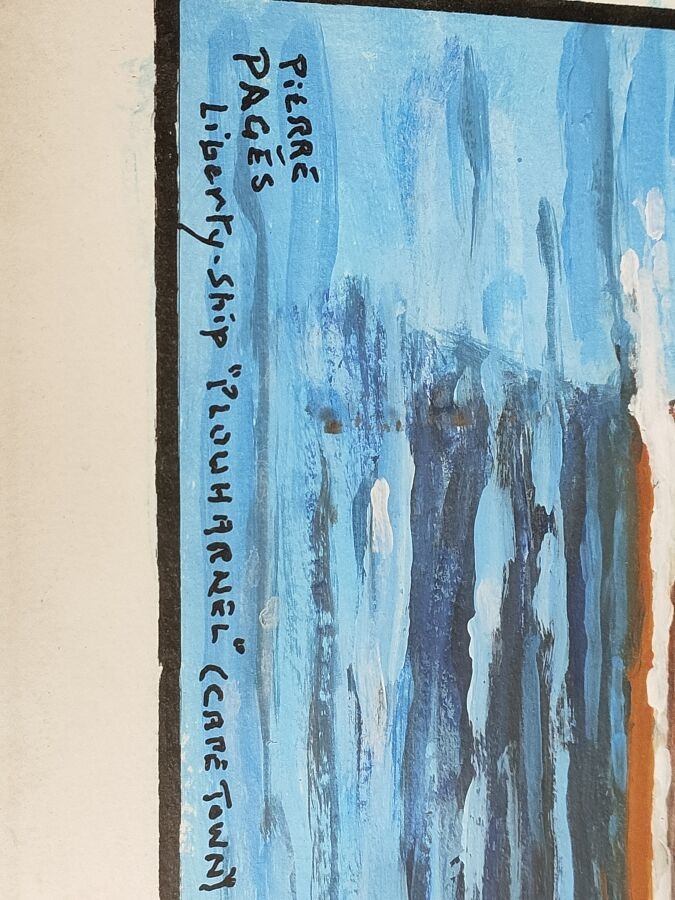 PiERRE
PAGÈS
Liberty-Ship "PLOUHARNEL" (CAPE TOWN)